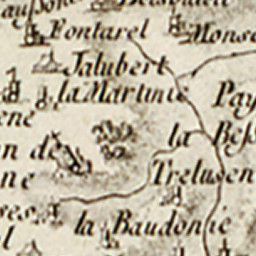 Pontarel
Monse
Jalubert
la Martinie
Pay
ene
la Bess
n de
ne
Trelusen
ses
la Baudonie